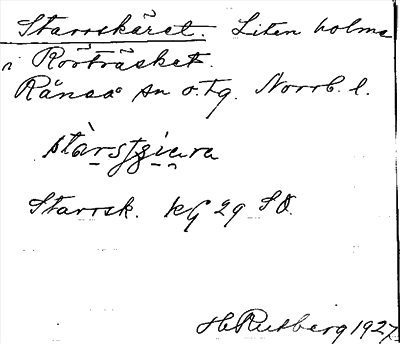 Starrskäret. Liten holme
i Rörträsket.
Råneå sn o. tg. Norrb. l.
Starrsk. KG 29 SO.
H Rutberg 1927